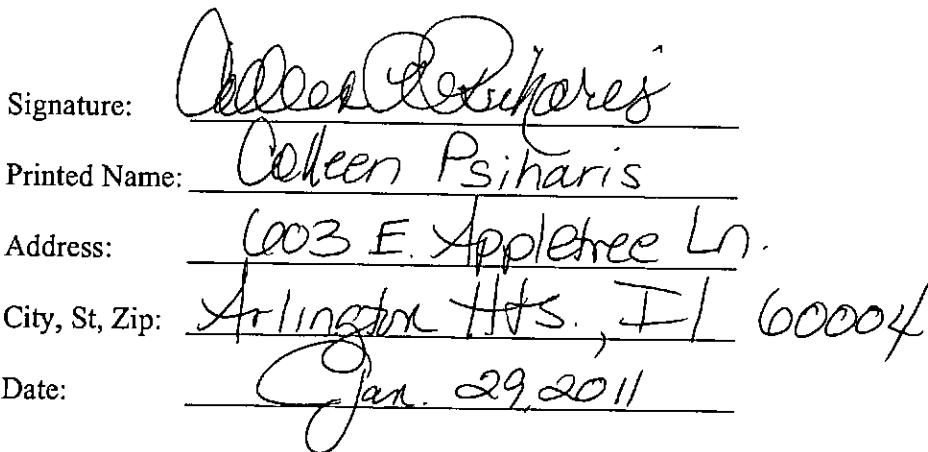 Signature: Colleen Psiharis
Printed Name: Colleen Psiharis
Address: 603 E. Appletree Ln.
City, St, Zip: Arlington Hts., Il 60004
Date: Jan. 29, 2011